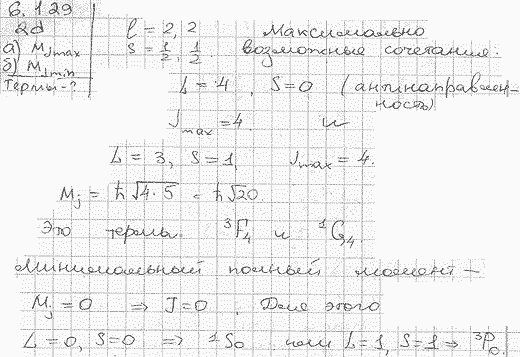 6.129
2d
а) M_jmax
б) M_jmin
Термы-?
l = 2, 2 Максимально
s = 1/2, 1/2 возможные сочетания:
L = 4, S=0 (антинаправлен-
ность)
J_max = 4. и
L = 3, S = 1, J_max = 4.
M_j = ħ√(4·5) = ħ√20
Это термы ³F₄ и ¹G₄
Минимальный полный момент —
M_j = 0 ⇒ J=0. Для этого
L=0, S=0 ⇒ ¹S₀ или L=1, S=1 ⇒ ³P₀.